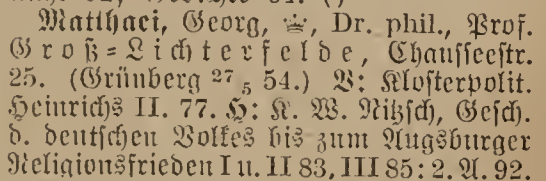 Matthaei, Georg, ♕, Dr. phil., Prof.
Groß-Lichterfelde, Chausseestr.
25. (Grünberg 27/5 54.) V: Klosterpolit.
Heinrichs II. 77. H: K. W. Nitzsch, Gesch.
d. deutschen Volkes bis zum Augsburger
Religionsfrieden I u. II 83, III 85: 2. A. 92.